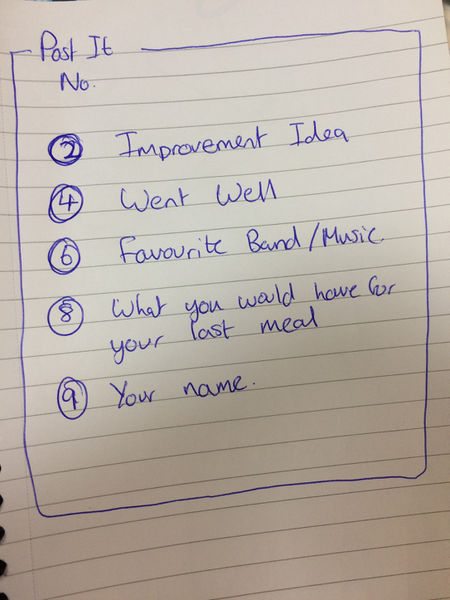 Post It
No.
2 Improvement Idea
4 Went Well
6 Favourite Band/Music.
8 What you would have for
your last meal
9 Your name.